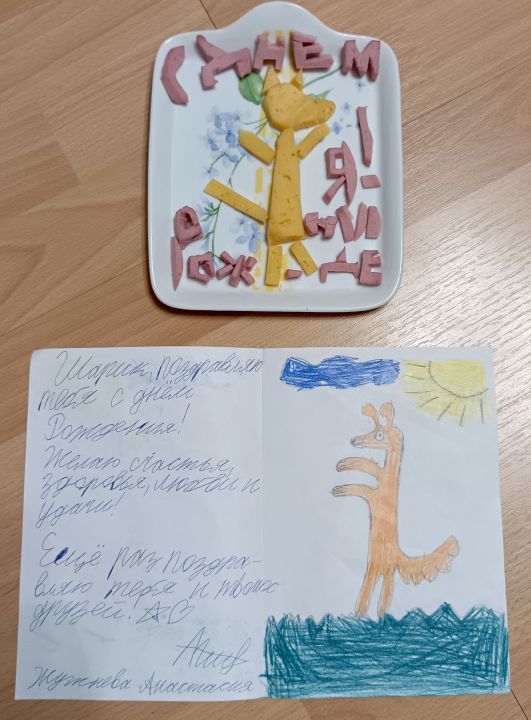 С ДНЕМ
РОЖ-ДЕ
НИ-
Я!
Шарик, поздравляю
тебя с днём
Рождения!
Желаю счастья,
здоровья, любви и
удачи!
Ещё раз поздра-
вляю тебя и твоих
друзей.
Анастасия